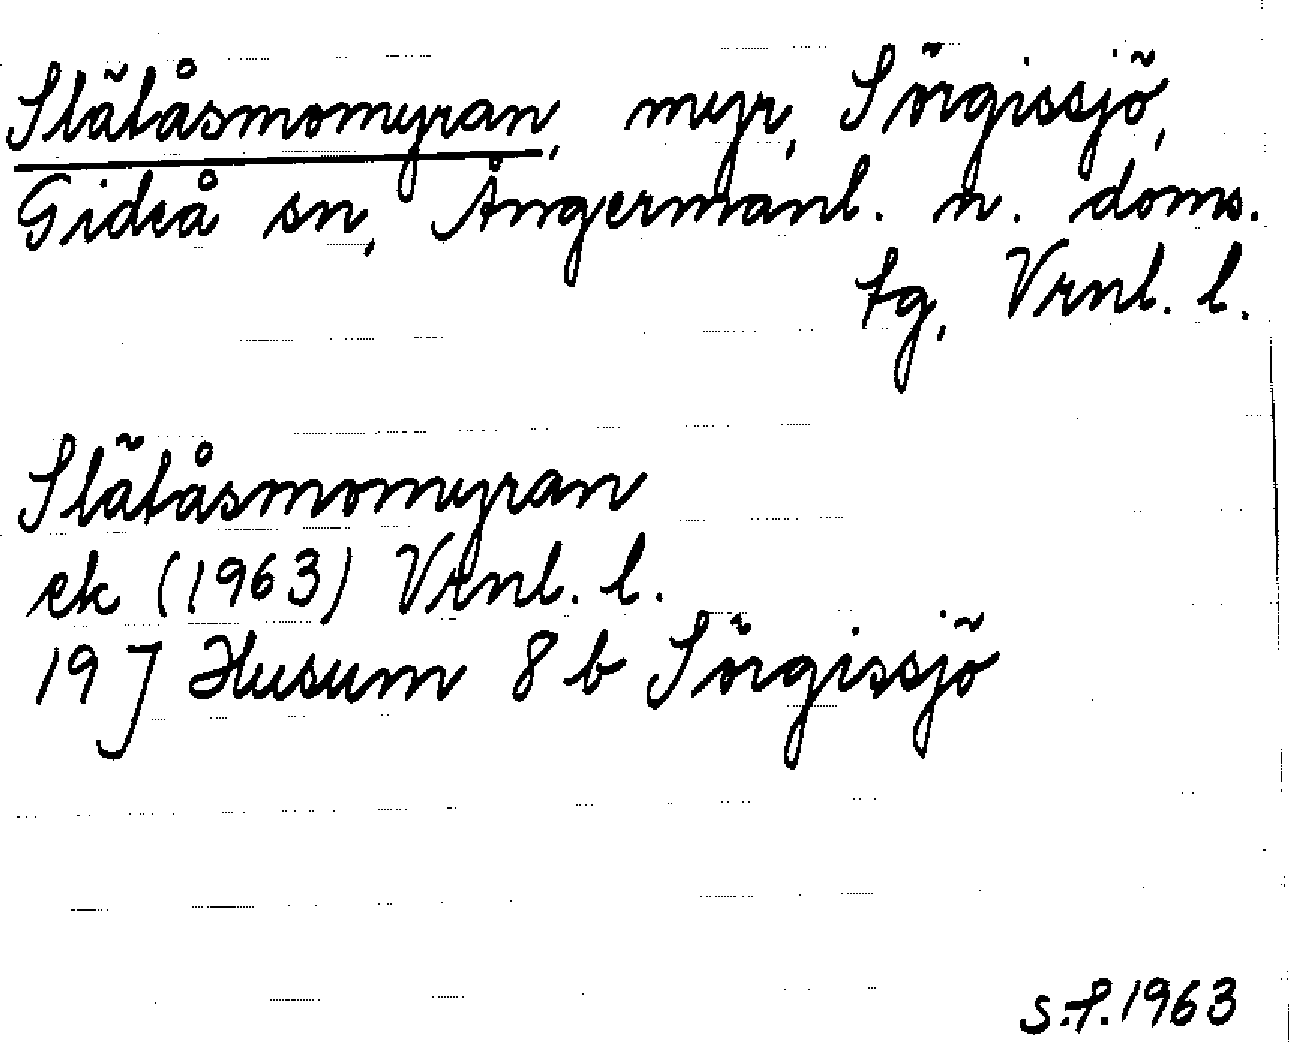 Slätåsmomyran, myr, Sörgissjö,
Gideå sn, Ångermanl. n. doms.
tg, Vrnl. l.
Slätåsmomyran
ek (1963) Vrnl. l.
19 J Husum 8 b Sörgissjö
S.F. 1963